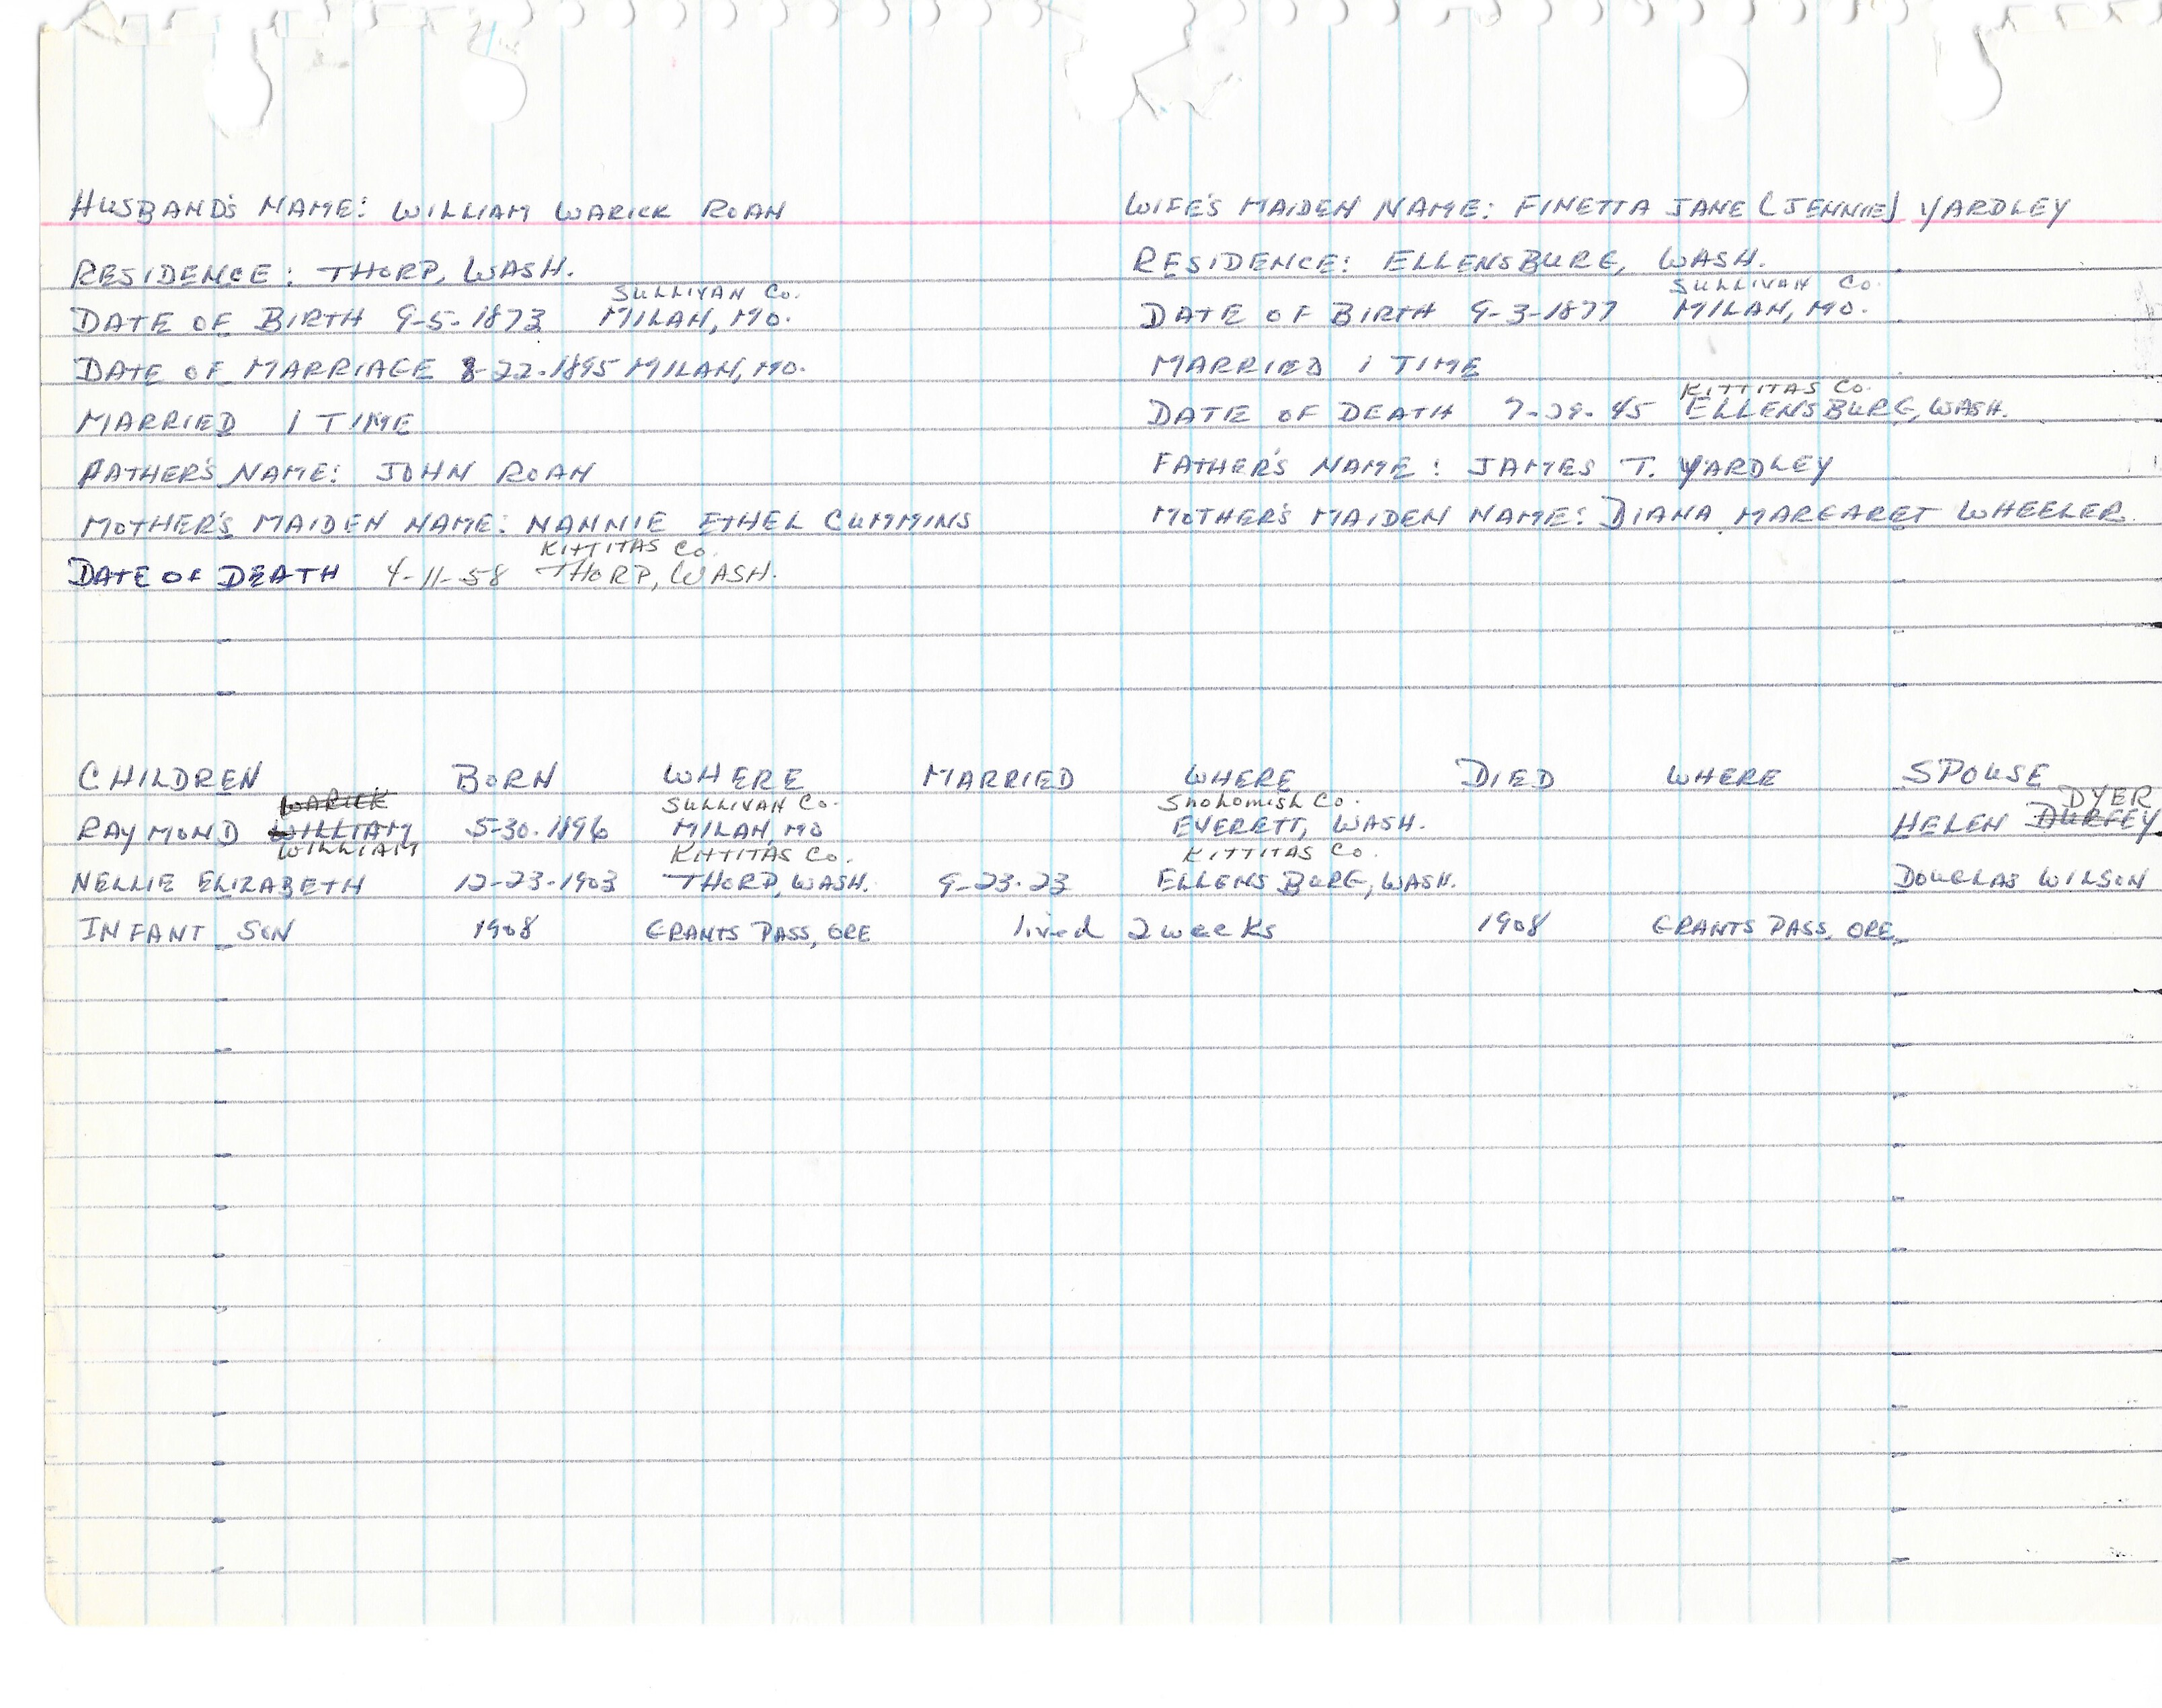 HUSBAND'S NAME: WILLIAM WARICK ROAN
RESIDENCE: THORP, WASH.
SULLIVAN CO.
DATE OF BIRTH 9-5-1873 MILAN, MO.
DATE OF MARRIAGE 8-22-1895 MILAN, MO.
MARRIED 1 TIME
FATHER'S NAME: JOHN ROAN
MOTHER'S MAIDEN NAME: NANNIE ETHEL CUMMINS
KITTITAS CO.
DATE OF DEATH 4-11-58 THORP, WASH.
WIFE'S MAIDEN NAME: FINETTA JANE (JENNIE) YARDLEY
RESIDENCE: ELLENSBURG, WASH.
SULLIVAN CO.
DATE OF BIRTH 9-3-1877 MILAN, MO.
MARRIED 1 TIME
KITTITAS CO.
DATE OF DEATH 7-29-45 ELLENSBURG, WASH.
FATHER'S NAME: JAMES T. YARDLEY
MOTHER'S MAIDEN NAME: DIANA MARGARET WHEELER.
CHILDREN BORN WHERE MARRIED WHERE DIED WHERE SPOUSE
WARICK SULLIVAN CO. Snohomish Co. DYER
RAYMOND WILLIAM 5-30-1896 MILAN, MO EVERETT, WASH. HELEN DURFEY
WILLIAM KITTITAS CO. KITTITAS CO.
NELLIE ELIZABETH 12-23-1903 THORP, WASH. 9-23-23 ELLENSBURG, WASH. DOUGLAS WILSON
INFANT SON 1908 GRANTS PASS, ORE lived 2 weeks 1908 GRANTS PASS, ORE.